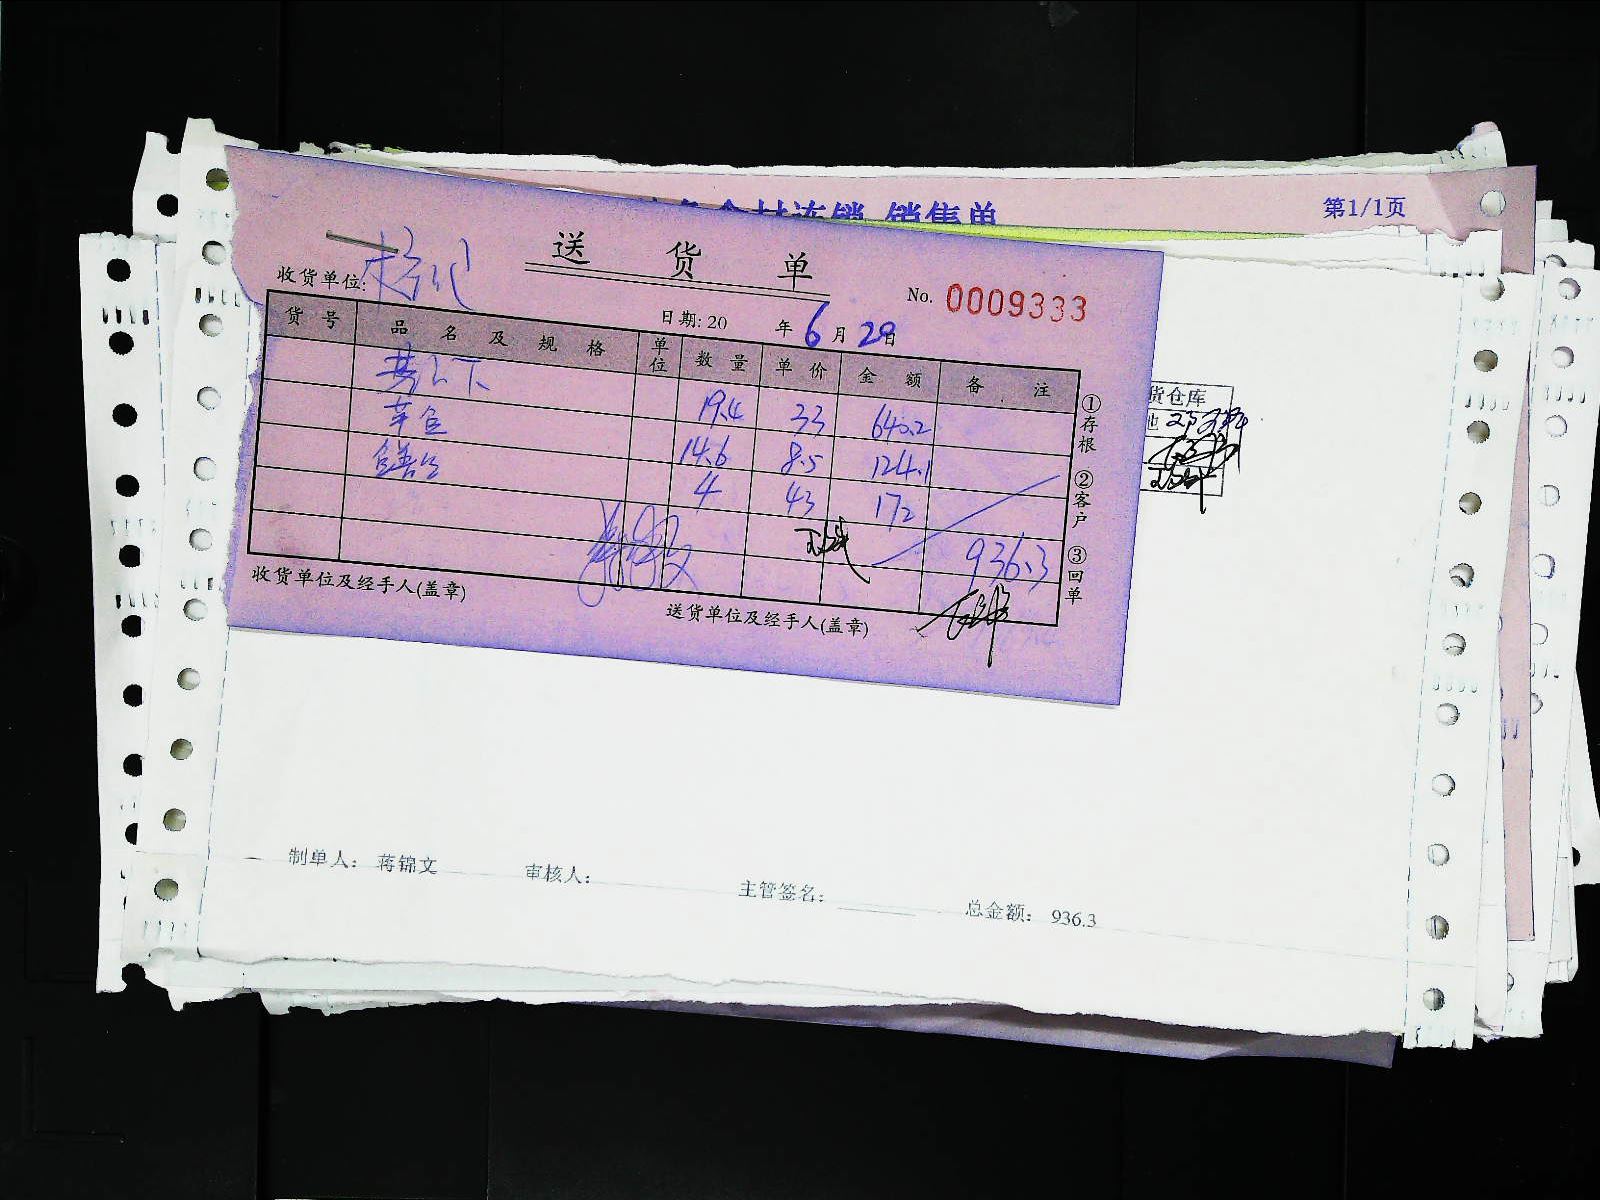 连锁 销售单
第1/1页
送 货 单
收货单位: 杨记
No. 0009333
日期: 20 年 6 月 28 日
货 号 品 名 及 规 格 单位 数 量 单 价 金 额 备 注
19.4 33 640.2
草鱼 14.6 8.5 124.1
4 43 172
936.3
①存根
②客户
③回单
收货单位及经手人(盖章)
送货单位及经手人(盖章)
货仓库
制单人: 蒋锦文 审核人: 主管签名: 总金额: 936.3